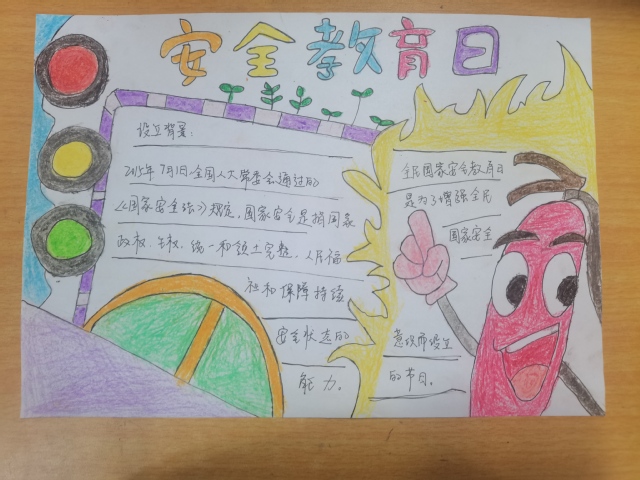 安全教育日
设立背景：
2015年7月1日，全国人大常委会通过的
《国家安全法》规定，国家安全是指国家
政权、主权、统一和领土完整、人民福
祉和保障持续
安全状态的
能力。
全民国家安全教育日
是为了增强全民
国家安全
意识而设立
的节日。